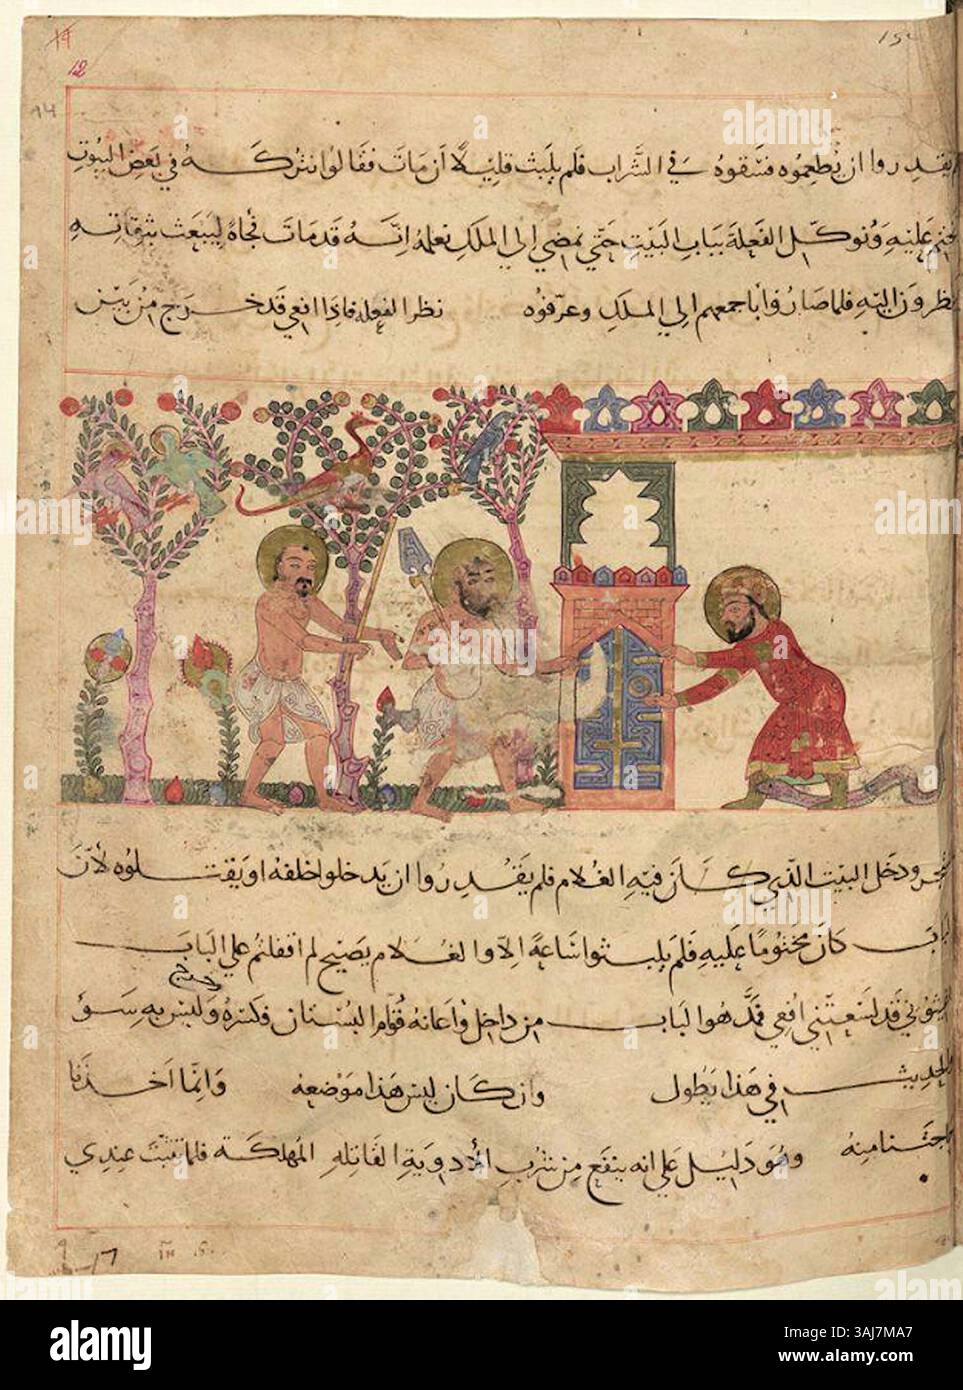 14
12
يقدروا ان يطعموه فسقوه في الشراب فلم يلبث قليلا ان مات فقالوا نتركه في بعض البيوت
عليه ونوكل الفعلة بباب البيت حتى نمضي الى الملك نعلمه انه قد مات فجاة ليبعث بثقاته
ينظرون اليه فلما صاروا باجمعهم الى الملك وعرفوه نظر الفعله فاذا افعي قد خرج من بين
ودخل البيت الذي كان فيه الغلام فلم يقدروا ان يدخلوا خلفه او يقتلوه لان
الباب كان مختوما عليه فلم يلبثوا ساعة الا والغلام يصيح لم اقفلتم علي الباب
قد لسعتني افعي من داخل واعانه قوام البستان فكسره وليس به سو
خرج
والحديث في هذا يطول وان كان ليس هذا موضعه وانما اخذنا
منه وهو دليل على انه ينفع من شرب الادوية القاتله المهلكة فلما ثبت عندي
alamy
Image ID: 3AJ7MA7
www.alamy.com